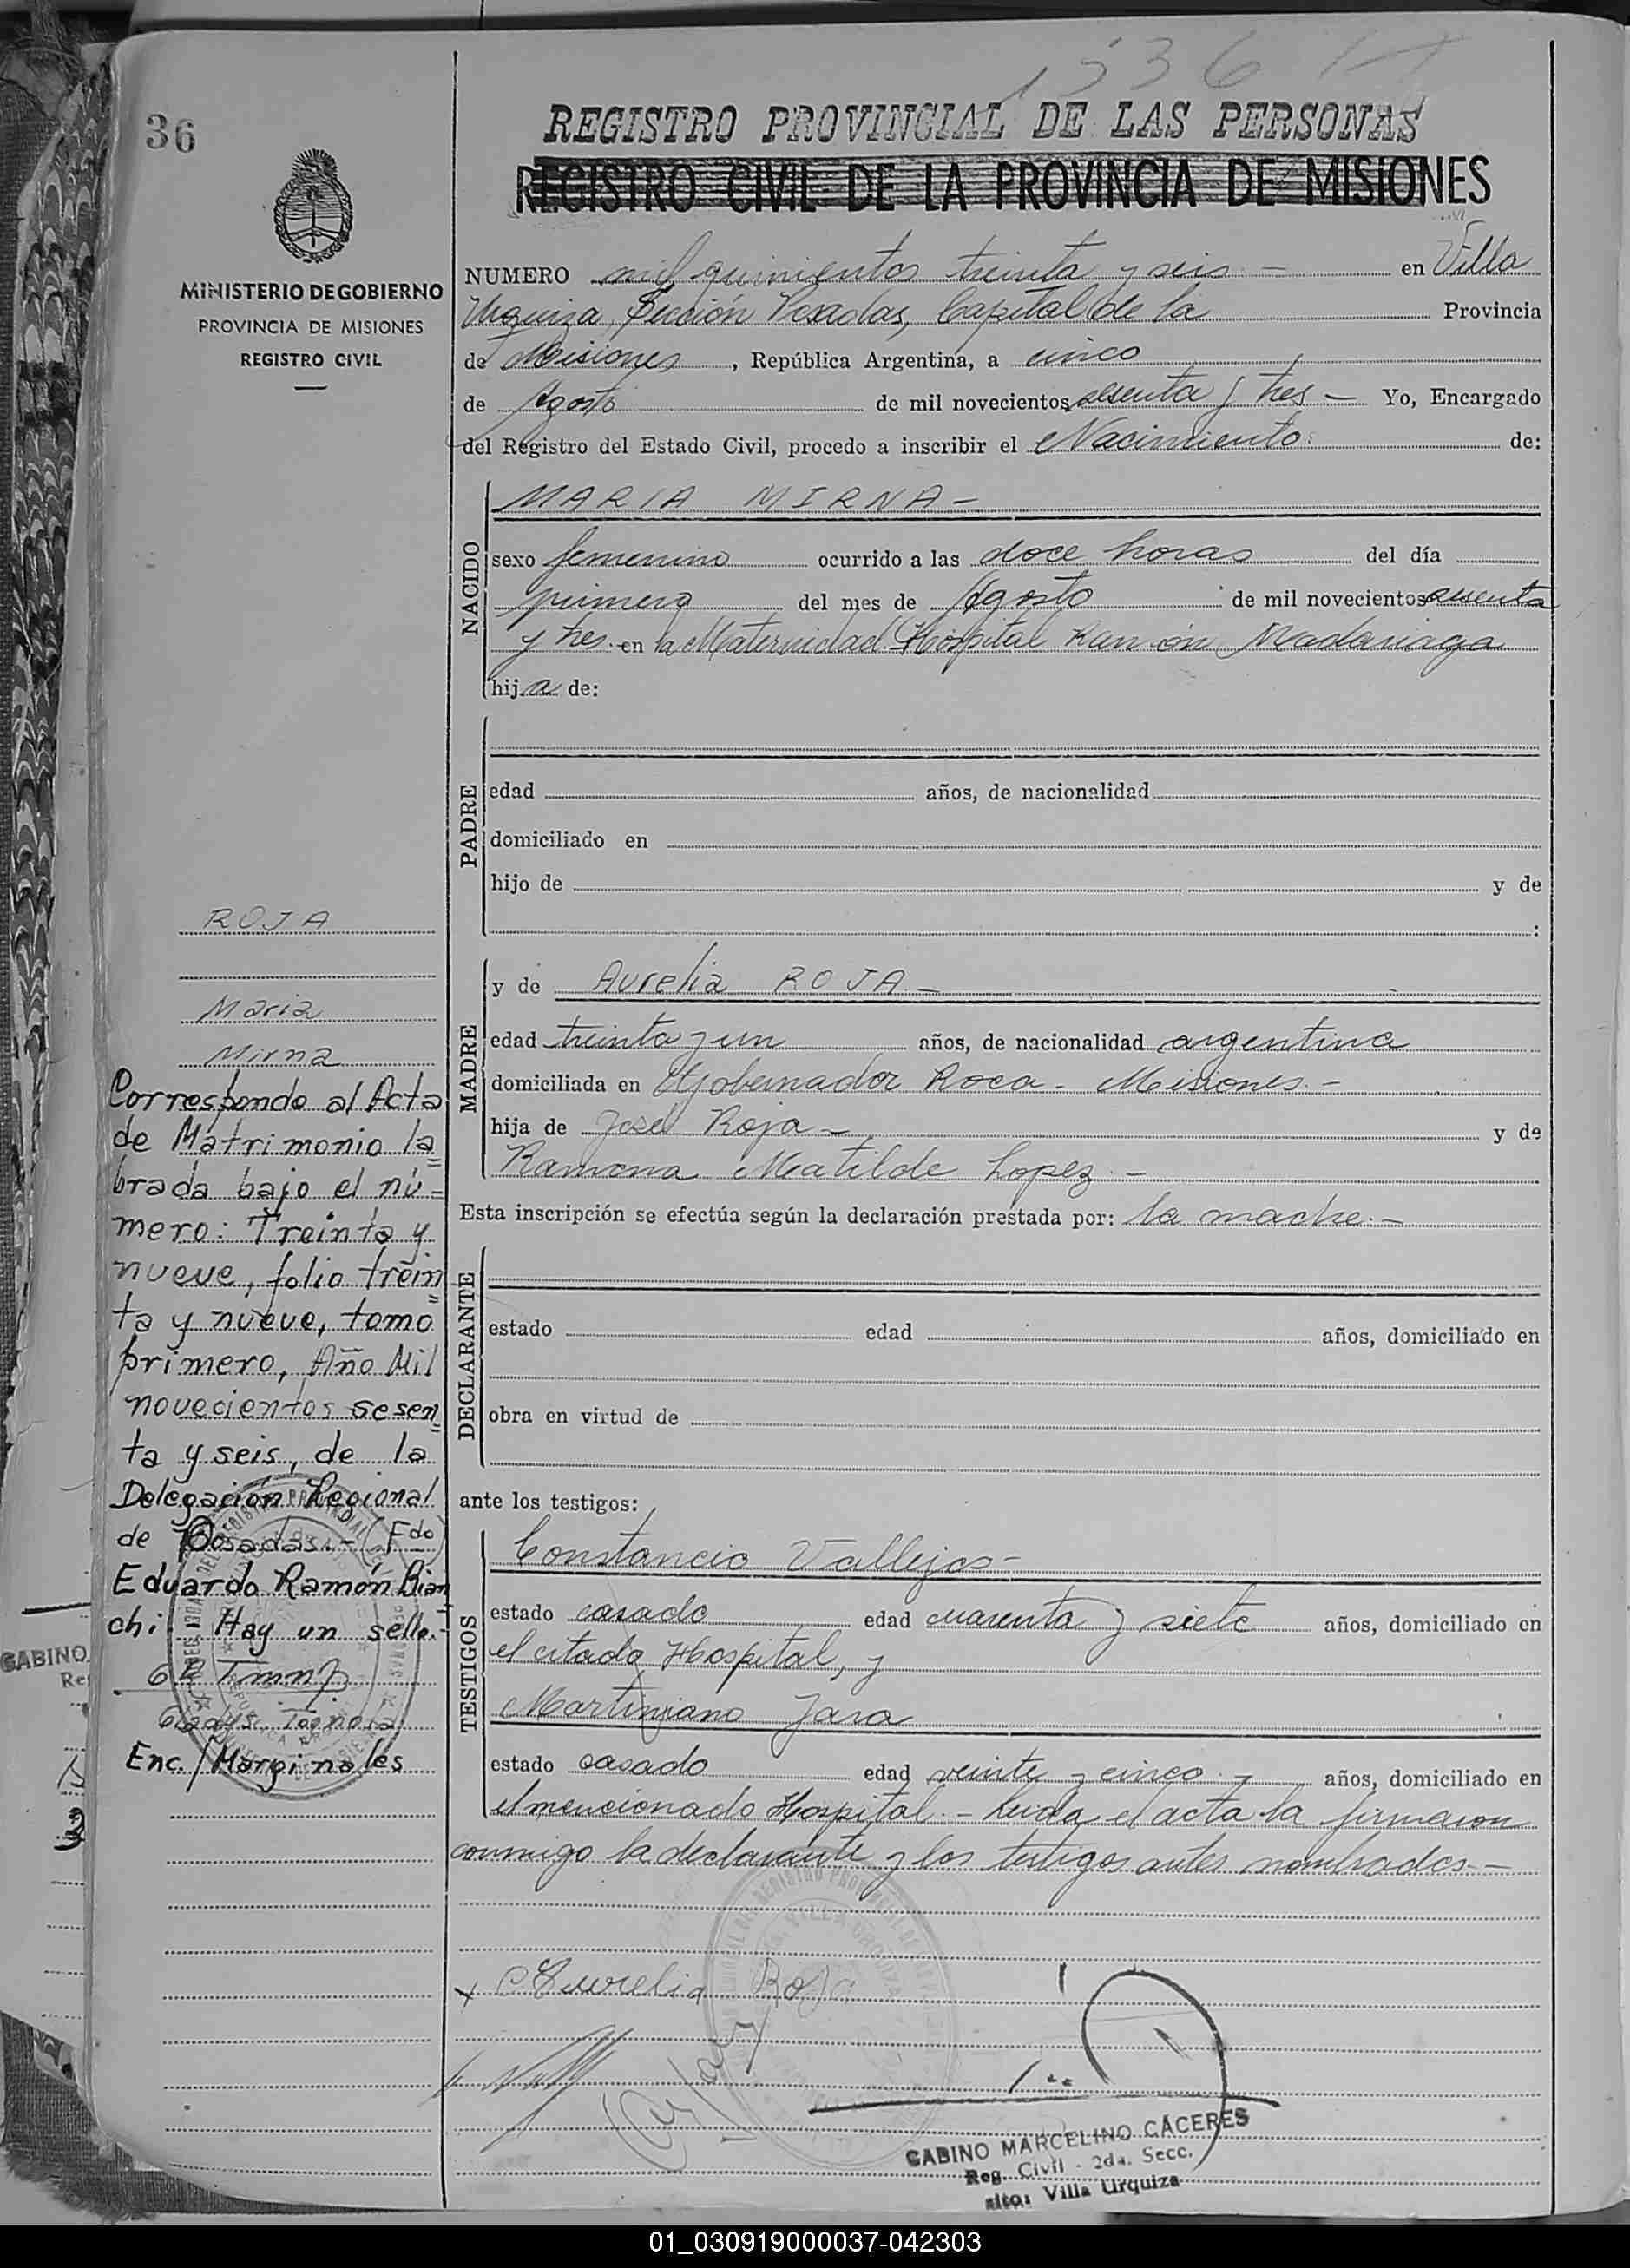 1536
36
REGISTRO PROVINCIAL DE LAS PERSONAS
REGISTRO CIVIL DE LA PROVINCIA DE MISIONES
MINISTERIO DE GOBIERNO
PROVINCIA DE MISIONES
REGISTRO CIVIL
NUMERO mil quinientos treinta y seis - en Villa
Urquiza, Sección Posadas, Capital de la Provincia
de Misiones, República Argentina, a cinco
de Agosto de mil novecientos sesenta y tres - Yo, Encargado
del Registro del Estado Civil, procedo a inscribir el Nacimiento: de:
NACIDO
MARIA MIRNA -
sexo femenino ocurrido a las doce horas del día
primero del mes de Agosto de mil novecientos sesenta
y tres. en la Maternidad. Hospital Ramón Madariaga
hija de:
PADRE
edad años, de nacionalidad
domiciliado en
hijo de y de
:
ROJA
Maria
Mirna
MADRE
y de Aurelia ROJA -
edad treinta y un años, de nacionalidad argentina
domiciliada en Gobernador Roca - Misiones. -
hija de José Roja - y de
Ramona Matilde Lopez. -
Esta inscripción se efectúa según la declaración prestada por: la madre. -
DECLARANTE
estado edad años, domiciliado en
obra en virtud de
ante los testigos:
TESTIGOS
Constancio Vallejos -
estado casado edad cuarenta y siete años, domiciliado en
el citado Hospital, y
Martiniano Jara
estado casado edad veinte y cinco. - años, domiciliado en
el mencionado Hospital. - Leida el acta la firmaron
conmigo la declarante y los testigos antes nombrados. -
Corresponde al Acta
de Matrimonio la=
brada bajo el nú=
mero: Treinta y
nueve, folio trein=
ta y nueve, tomo
primero, Año Mil
novecientos sesen=
ta y seis, de la
Delegación Regional
de Posadas. - (Fdo)
Eduardo Ramón Bian=
chi. Hay un sello. -
Enc./Marginales
x Aurelia Roja
GABINO MARCELINO CÁCERES
Reg. Civil - 2da. Secc.
Villa Urquiza
GABINO
01_030919000037-042303